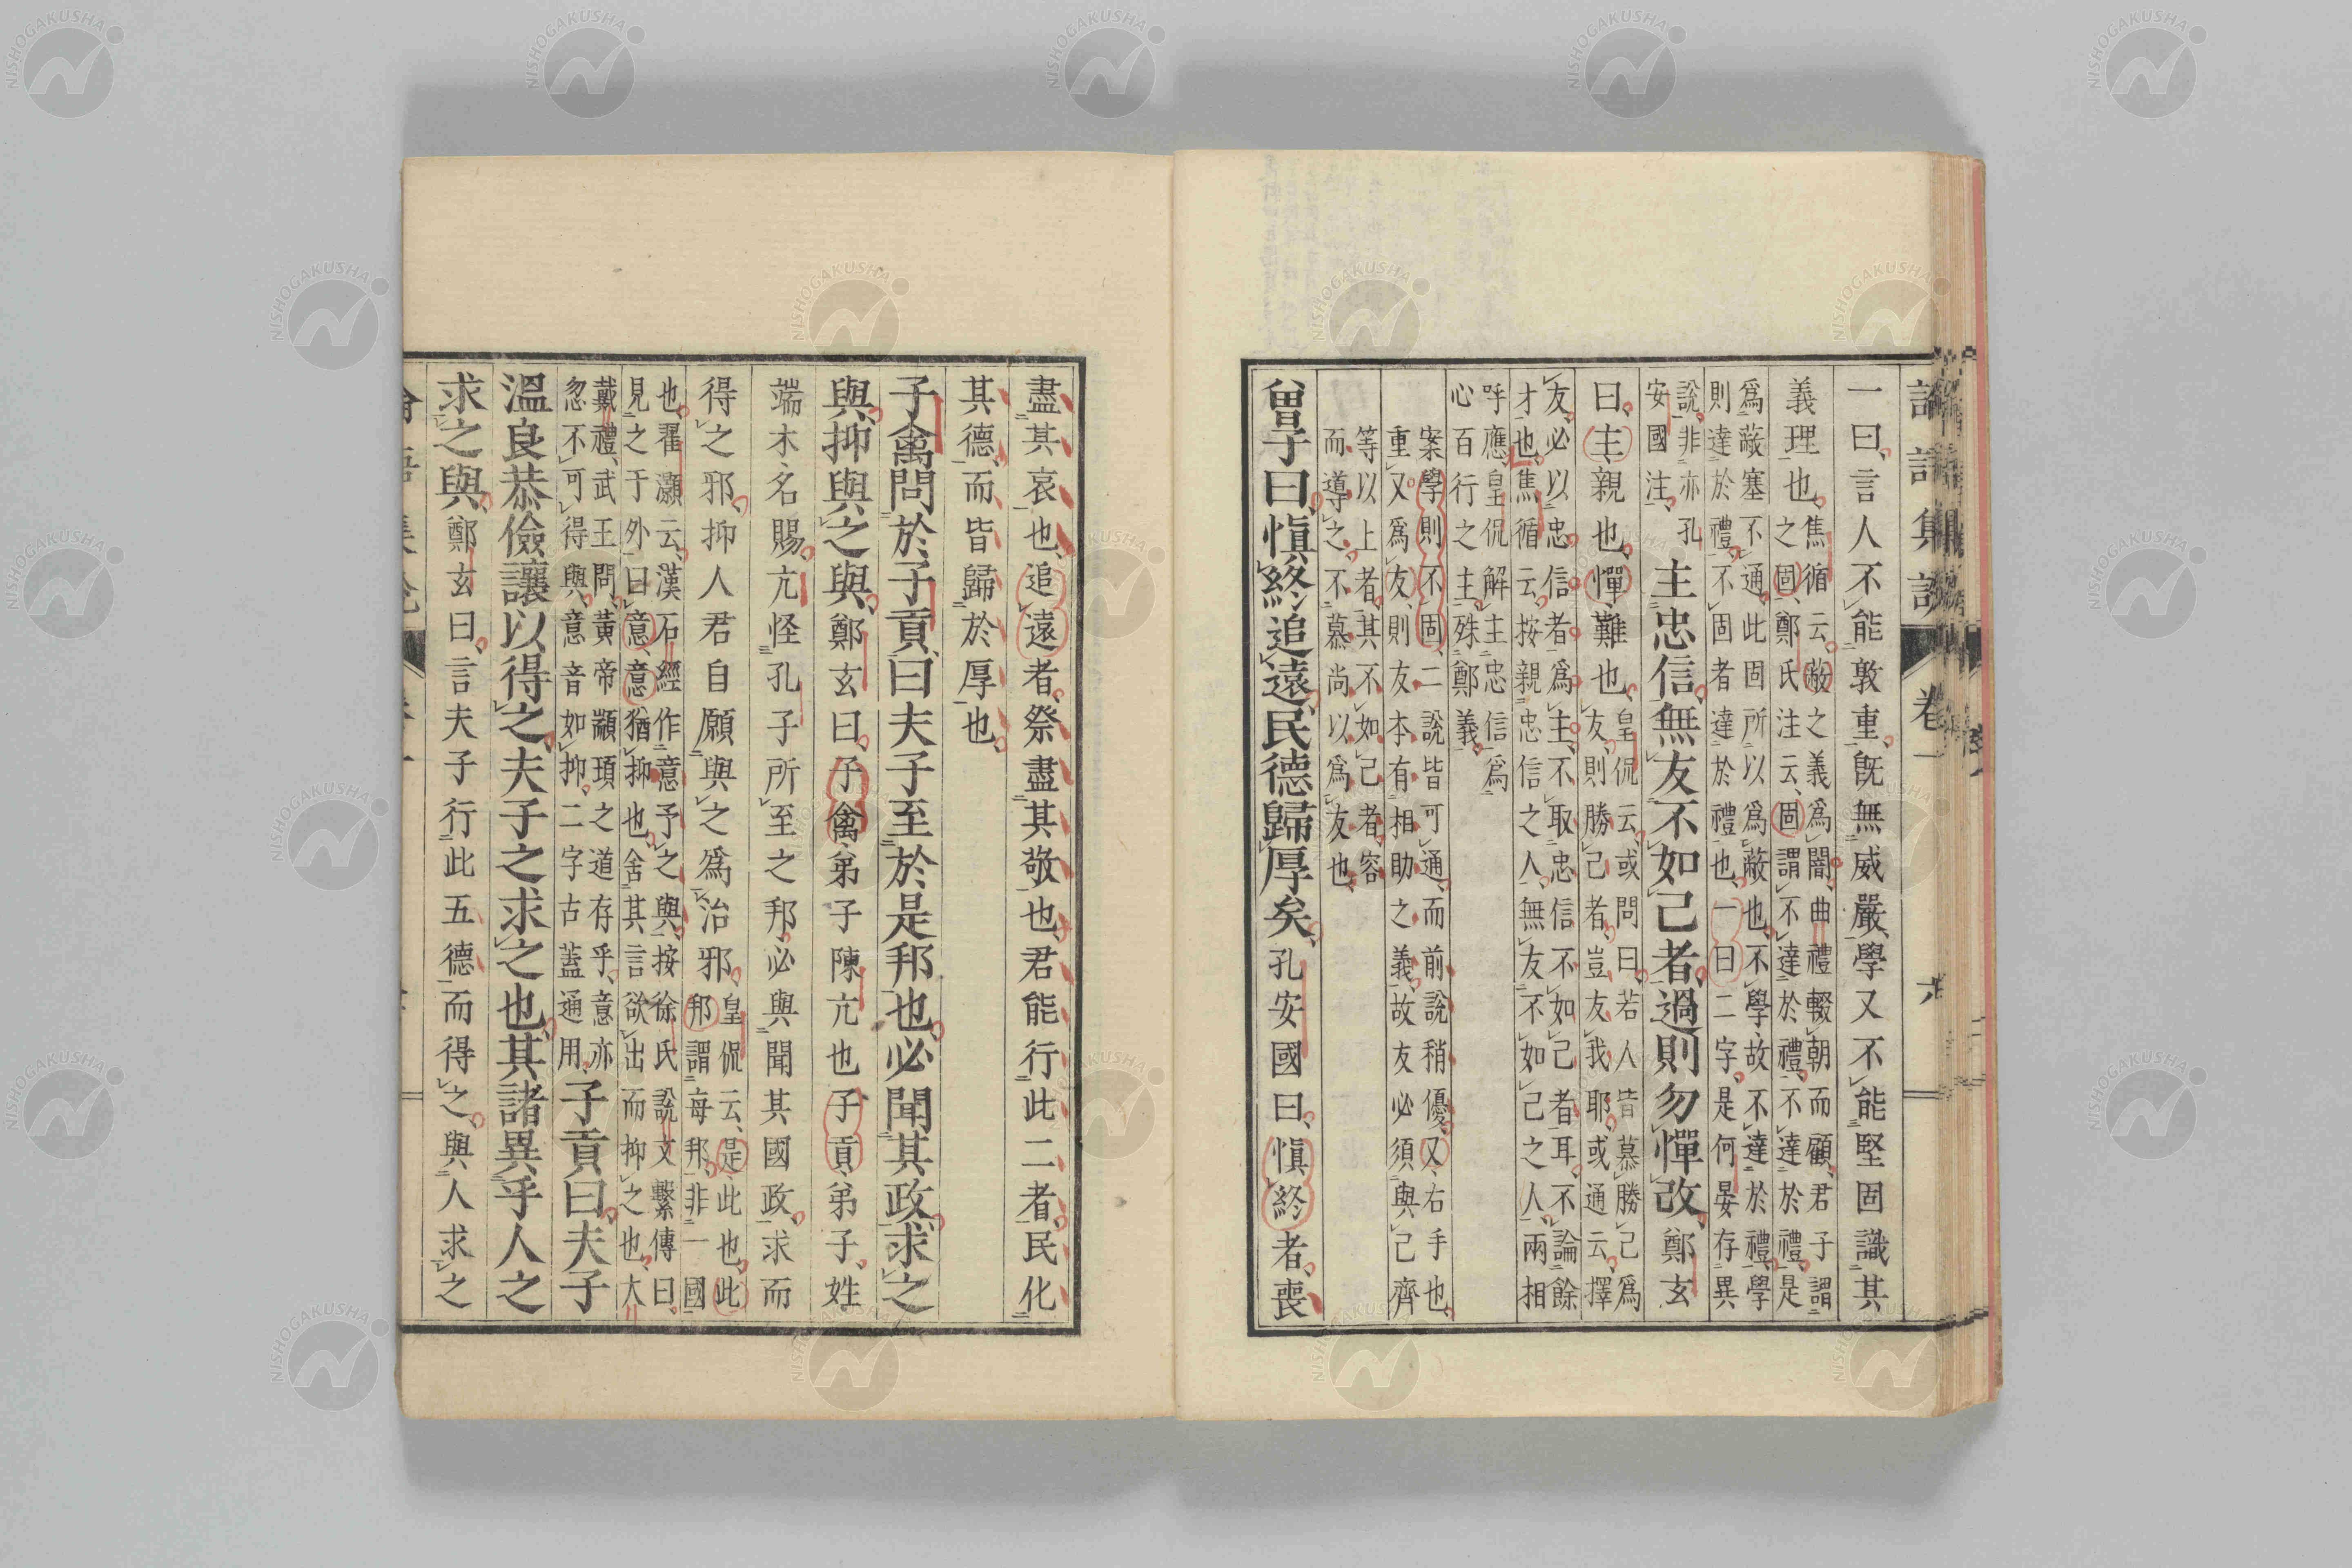 論語集說 卷一 六
一曰言人不能敦重旣無威嚴學又不能堅固識其
義理也焦循云蔽之義爲闇曲禮輟朝而顧君子謂
之固鄭氏注云固謂不達於禮不達於禮是
爲蔽塞不通此固所以爲蔽也不學故不達於禮學
則達於禮不固者達於禮也一曰二字是何晏存異
說非亦孔
安國注
主忠信無友不如己者過則勿憚改鄭玄
曰主親也憚難也皇侃云或問曰若人皆慕勝己爲
友則勝己者豈友我耶或通云擇
友必以忠信者爲主不取忠信不如己者耳不論餘
才也焦循云按親忠信之人無友不如己之人兩相
呼應皇侃解主忠信爲
心百行之主殊鄭義
案學則不固二說皆可通而前說稍優又右手也
重又爲友則友本有相助之義故友必須與己齊
等以上者其不如己者容
而導之不慕尚以爲友也
曾子曰愼終追遠民德歸厚矣孔安國曰愼終者喪
盡其哀也追遠者祭盡其敬也君能行此二者民化
其德而皆歸於厚也
子禽問於子貢曰夫子至於是邦也必聞其政求之
與抑與之與鄭玄曰子禽弟子陳亢也子貢弟子姓
端木名賜亢怪孔子所至之邦必與聞其國政求而
得之邪抑人君自願與之爲治邪皇侃云是此也此
邦謂每邦非一國
也翟灝云漢石經作意予之與按徐氏說文繫傳曰
見之于外曰意意猶抑也舍其言欲出而抑之也大
戴禮武王問黃帝顓頊之道存乎意亦
忽不可得與意音如抑二字古蓋通用
子貢曰夫子
溫良恭儉讓以得之夫子之求之也其諸異乎人之
求之與鄭玄曰言夫子行此五德而得之與人求之